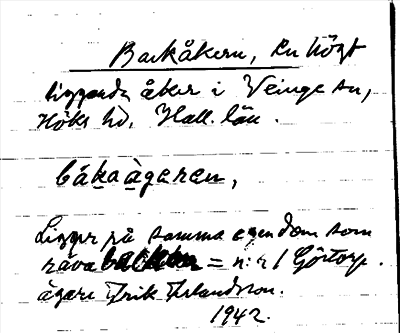 Backåkern, En högt
liggande åker i Veinge sn,
Höks hd. Hall. län.
bákaàgeren,
Ligger på samma egendom som
rävabacken = n:r 1 Göstorp.
ägare Erik Erlandsson.
1942.